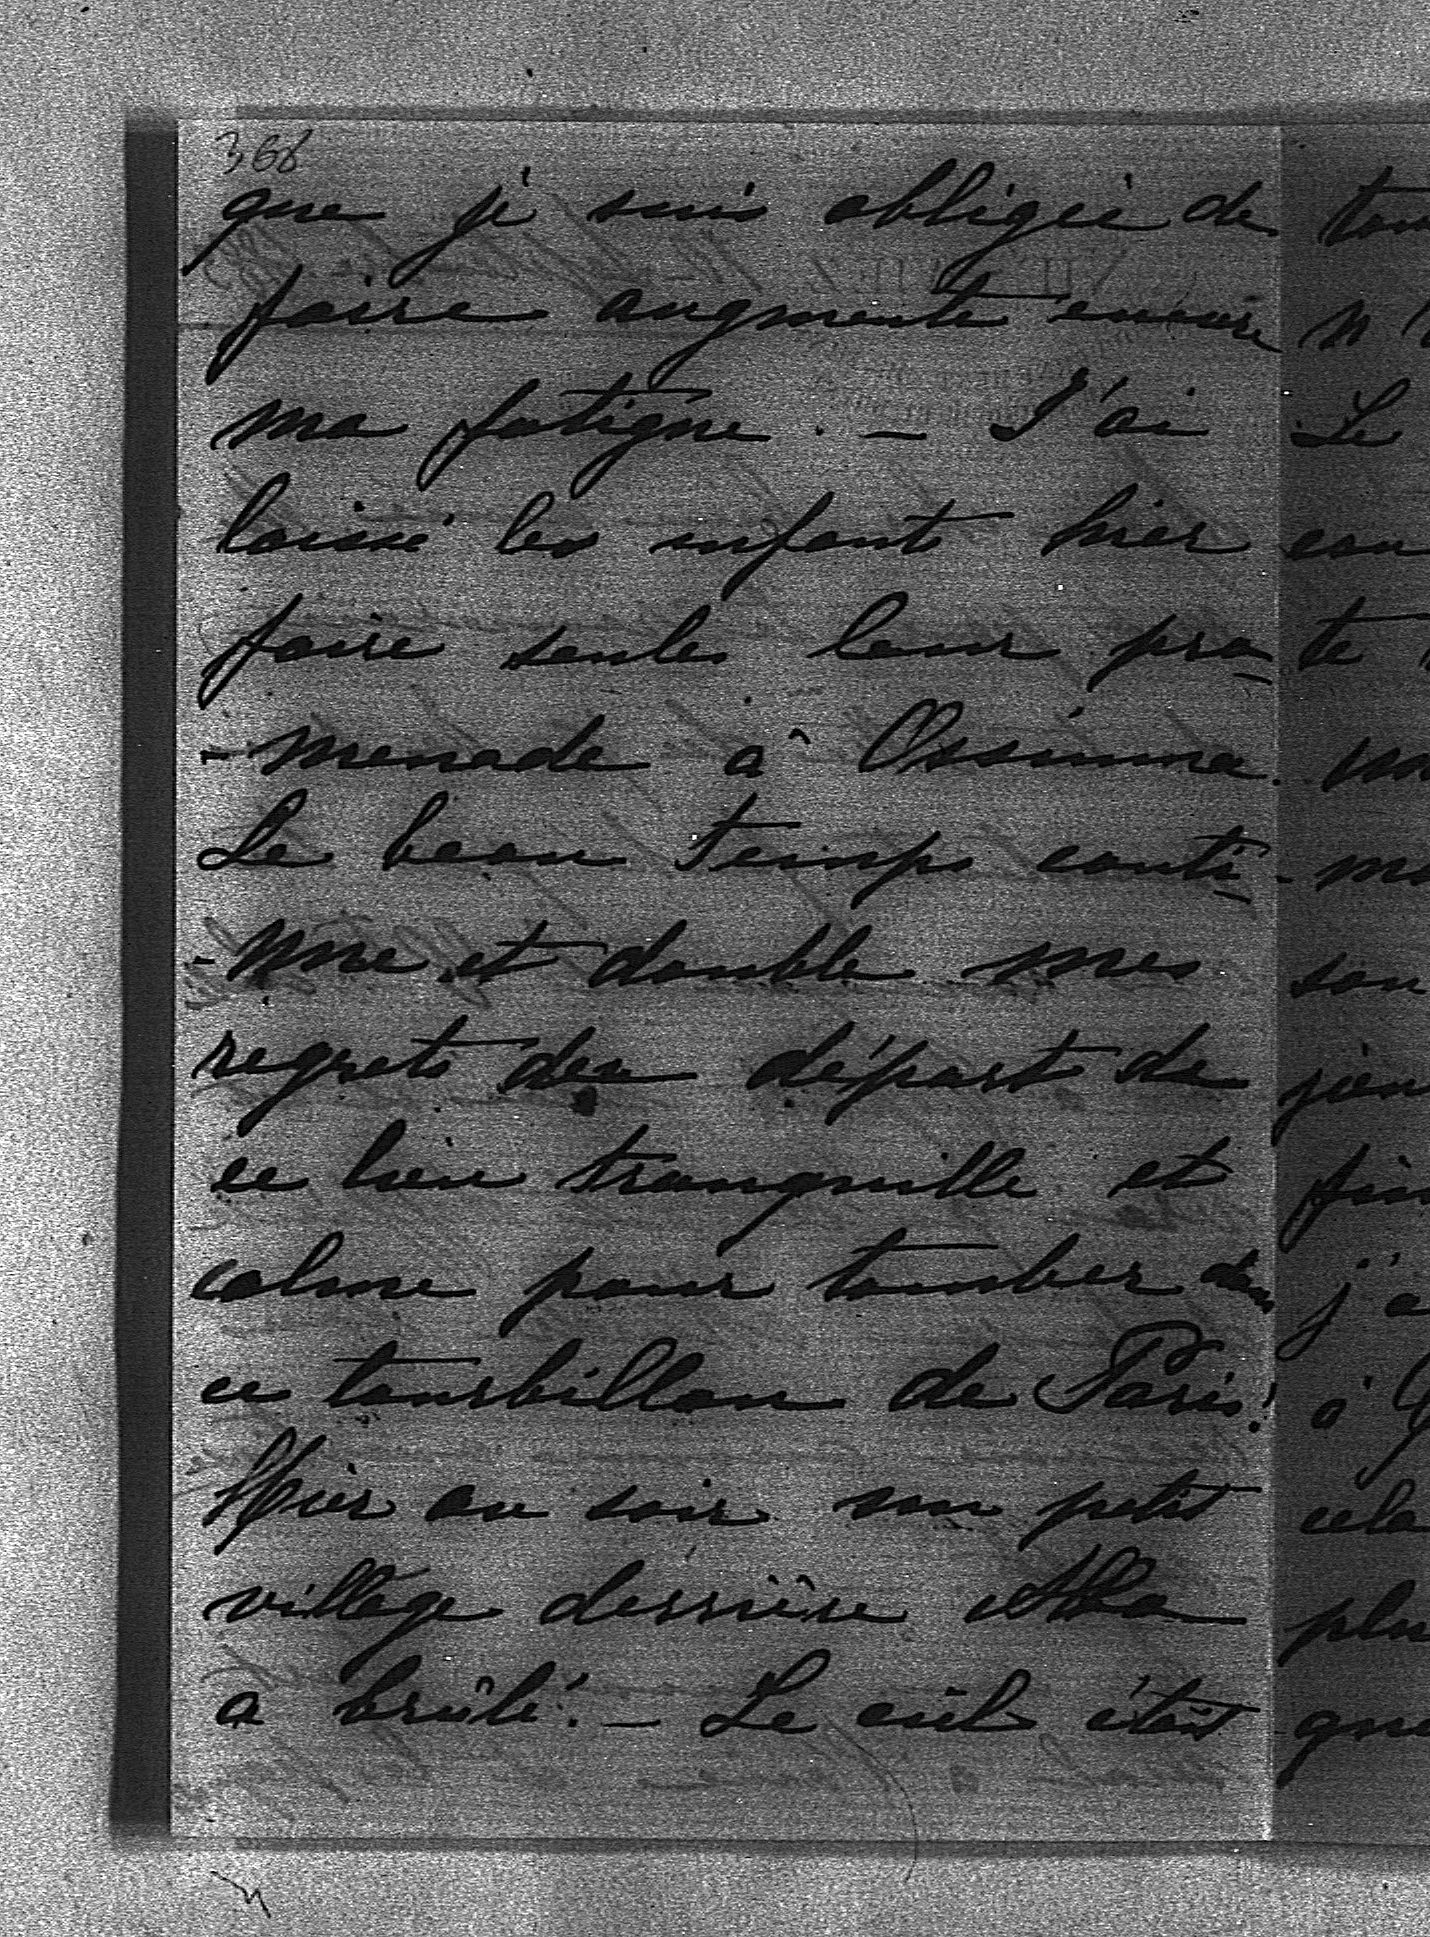 368
que je suis obligée de
faire augmente encore
ma fatigue. — J'ai
laissé les enfants hier
faire seules leur pro-
-menade à Ossinna.
Le beau temps conti-
-nue et double mes
regrets du départ de
ce lieu tranquille et
calme pour tomber dans
ce tourbillon de Paris!
Hier au soir un petit
village derrière Alba
a brûlé. — Le ciel était
Le
te